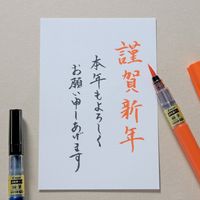 謹賀新年
本年もよろしく
お願い申しあげます